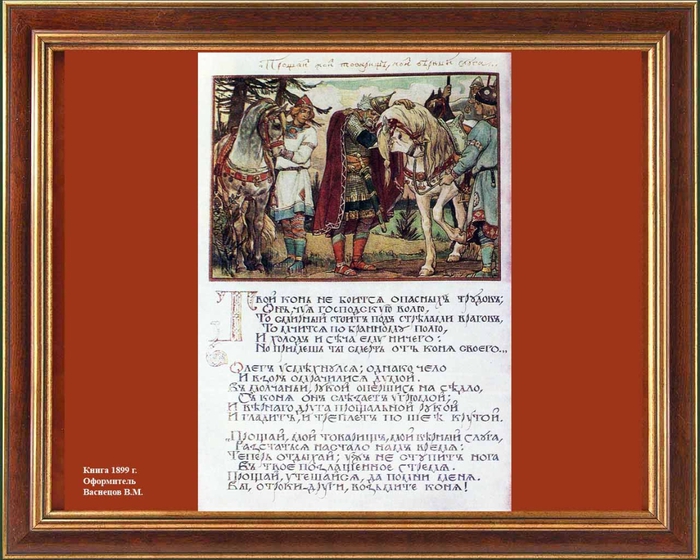 „Прощай мой товарищъ, мой вѣрный слуга...
Твой конь не боится опасныхъ трудовъ;
Онъ, чуя господскую волю,
То смирный стоитъ подъ стрѣлами враговъ,
То мчится по бранному полю,
И холодъ и сѣча ему ничего:
Но примешь ты смерть отъ коня своего...
Олегъ усмѣхнулся; однако чело
И взоръ омрачилися думой.
Въ молчаньи, рукой опершись на сѣдло,
Съ коня онъ слѣзаетъ угрюмой;
И вѣрнаго друга прощальной рукой
И гладитъ, и треплетъ по шеѣ крутой.
„Прощай, мой товарищъ, мой вѣрный слуга,
Разстаться настало намъ время:
Теперь отдыхай; ужъ не ступитъ нога
Въ твое позлащенное стремя.
Прощай, утѣшайся, да помни меня.
Вы, отроки-други, возьмите коня!
Книга 1899 г.
Оформитель
Васнецов В.М.